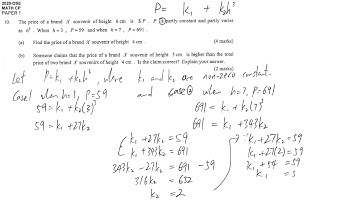 2020-DSE
MATH CP
PAPER 1
P = k₁ + k₂h³
10. The price of a brand X souvenir of height h cm is $ P . P is partly constant and partly varies
as h³ . When h = 3 , P = 59 and when h = 7 , P = 691 .
(a) Find the price of a brand X souvenir of height 4 cm . (4 marks)
(b) Someone claims that the price of a brand X souvenir of height 5 cm is higher than the total
price of two brand X souvenirs of height 4 cm . Is the claim correct? Explain your answer.
(2 marks)
Let P = k₁ + k₂h³ , where k₁ and k₂ are non-zero constant.
Case1 when h=3, P=59 and case② when h=7, P=691
59 = k₁ + k₂(3)³
691 = k₁ + k₂(7)³
59 = k₁ + 27k₂
691 = k₁ + 343k₂
k₁ + 27k₂ = 59
k₁ + 343k₂ = 691
343k₂ - 27k₂ = 691 - 59
316k₂ = 632
k₂ = 2
k₁ + 27k₂ = 59
k₁ + 27(2) = 59
k₁ + 54 = 59
k₁ = 5